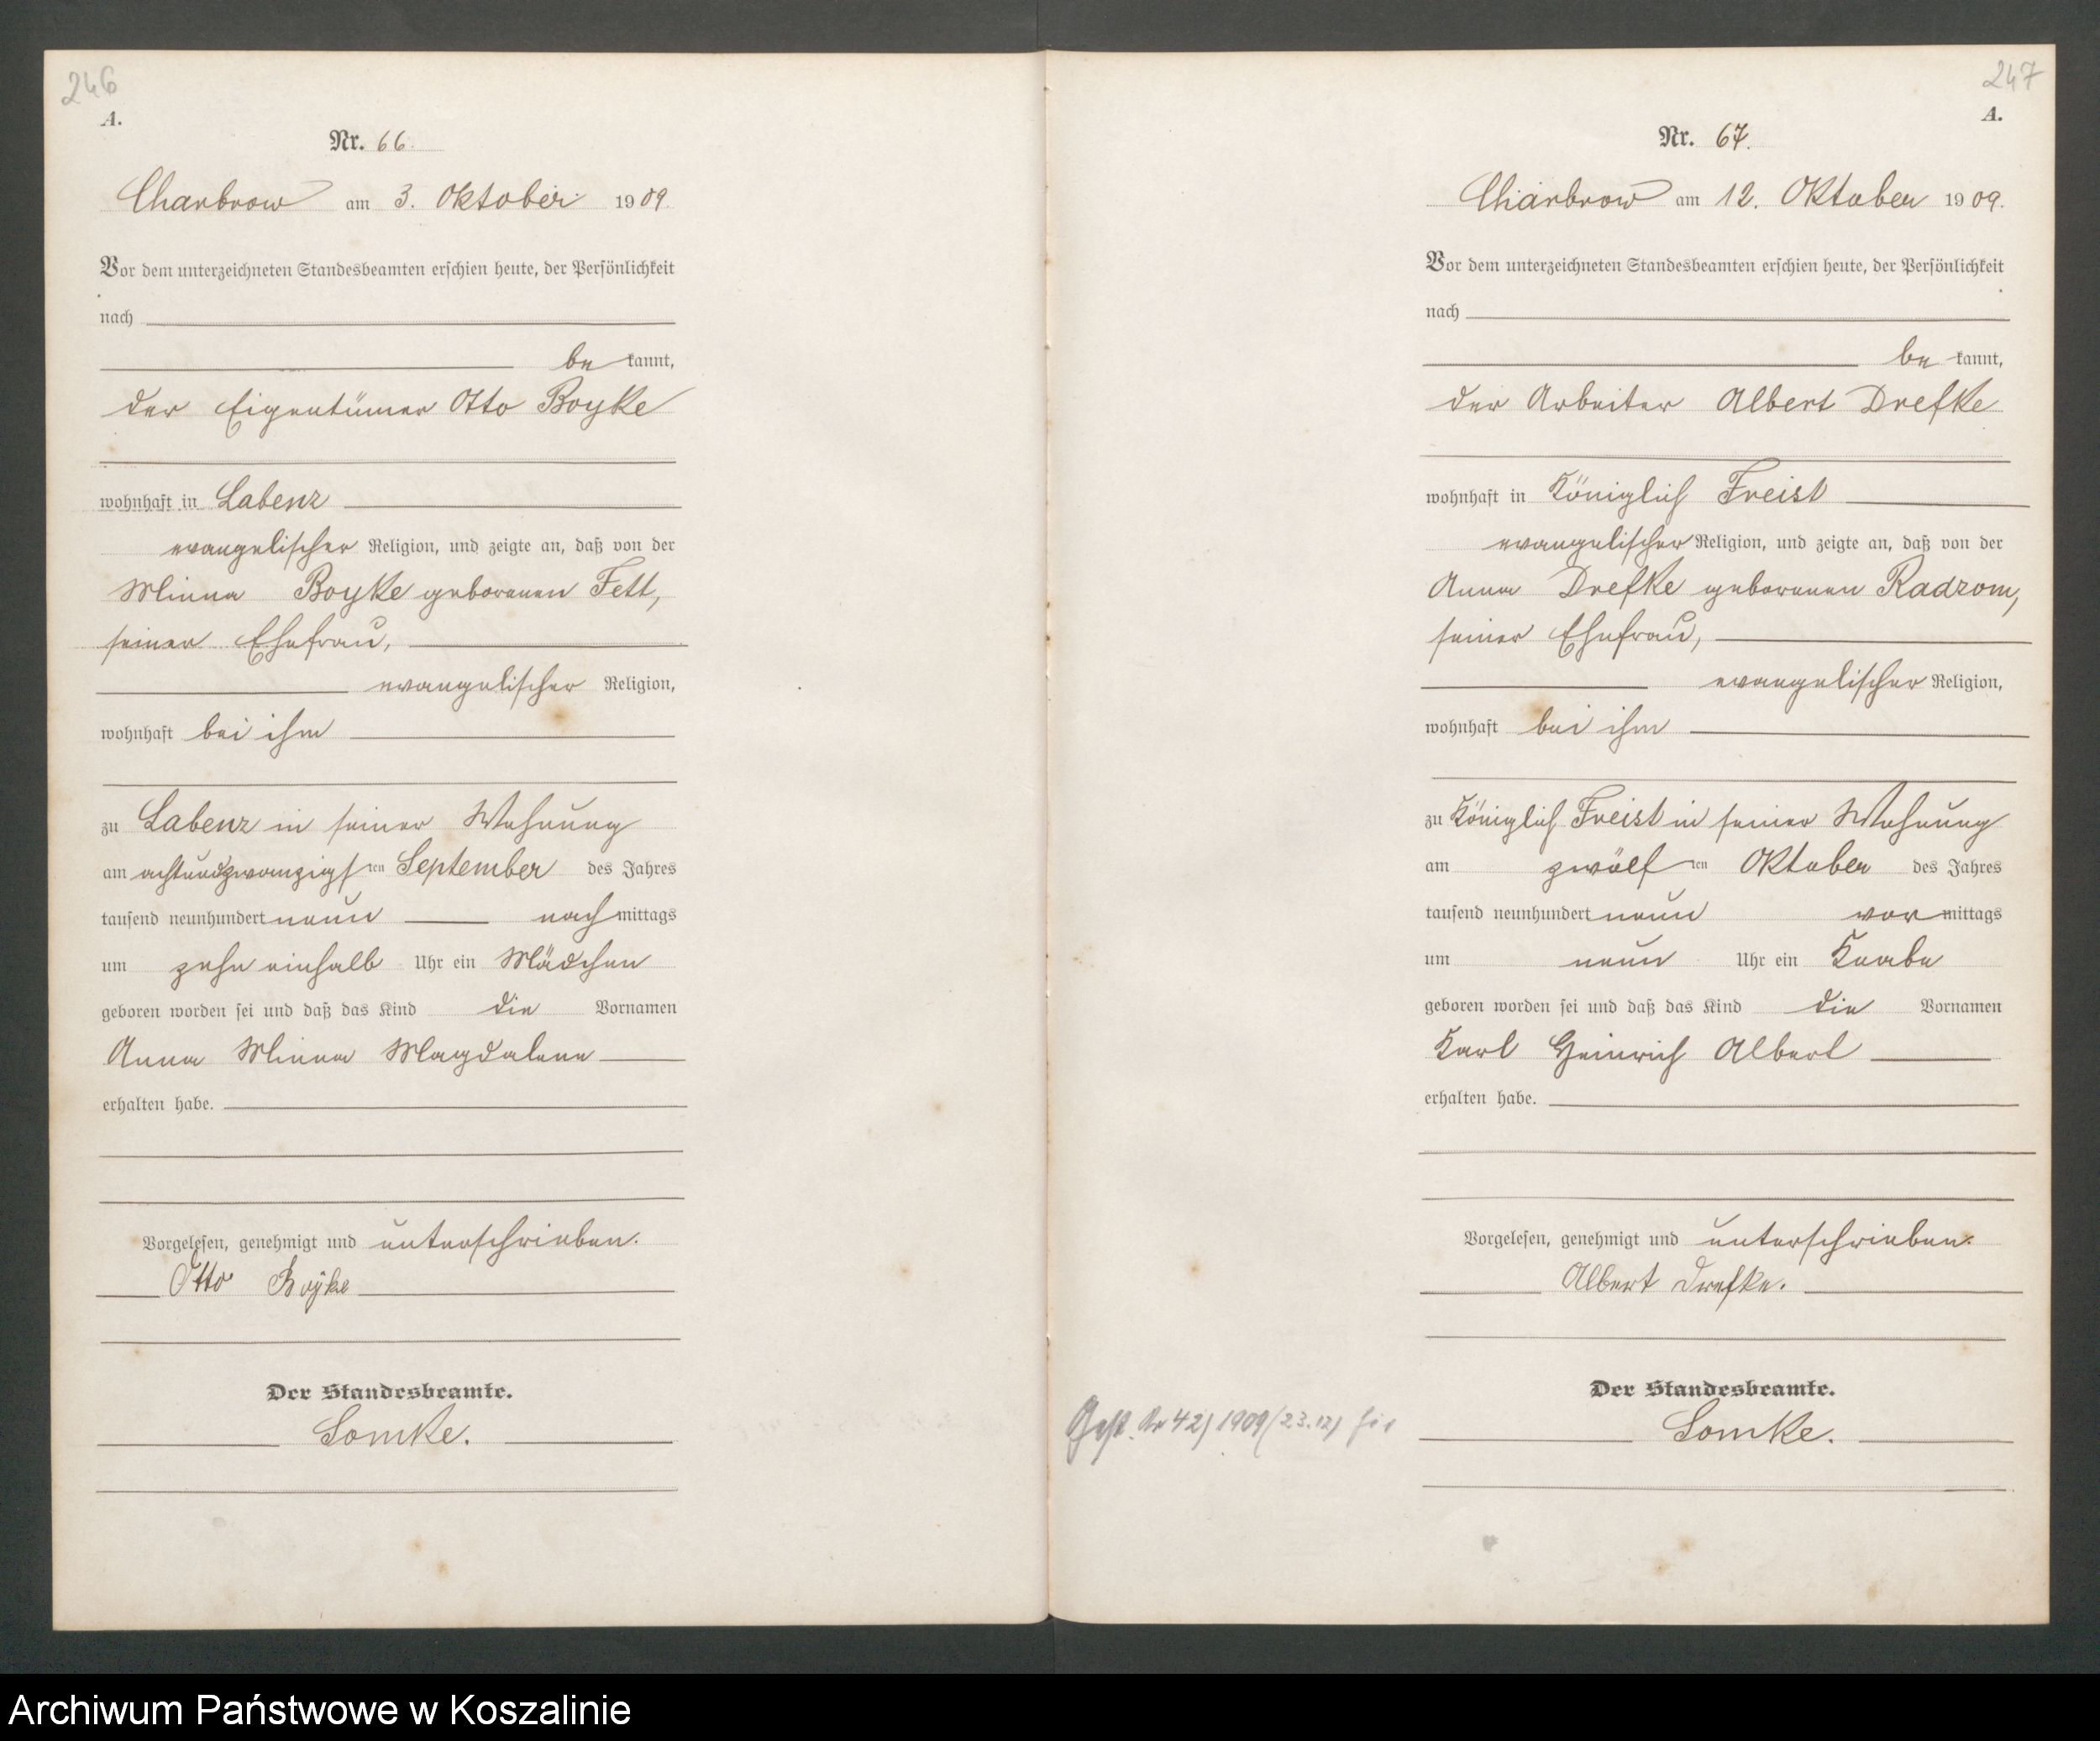 246
A.
Nr. 66.
Charbrow am 3. Oktober 1909.
Vor dem unterzeichneten Standesbeamten erschien heute, der Persönlichkeit
nach
be kannt,
der Eigentümer Otto Boyke
wohnhaft in Labenz
evangelischer Religion, und zeigte an, daß von der
Minna Boyke geborenen Fett,
seiner Ehefrau,
evangelischer Religion,
wohnhaft bei ihm
zu Labenz in seiner Wohnung
am achtundzwanzigsten September des Jahres
tausend neunhundert neun nachmittags
um zehn einhalb Uhr ein Mädchen
geboren worden sei und daß das Kind die Vornamen
Anna Minna Magdalene
erhalten habe.
Vorgelesen, genehmigt und unterschrieben.
Otto Boyke
Der Standesbeamte.
Lomke.
247
A.
Nr. 67.
Charbrow am 12. Oktober 1909.
Vor dem unterzeichneten Standesbeamten erschien heute, der Persönlichkeit
nach
be kannt,
der Arbeiter Albert Drefke
wohnhaft in Königlich Freist
evangelischer Religion, und zeigte an, daß von der
Anna Drefke geborenen Radzom,
seiner Ehefrau,
evangelischer Religion,
wohnhaft bei ihm
zu Königlich Freist in seiner Wohnung
am zwölften Oktober des Jahres
tausend neunhundert neun vormittags
um neun Uhr ein Knabe
geboren worden sei und daß das Kind die Vornamen
Karl Heinrich Albert
erhalten habe.
Vorgelesen, genehmigt und unterschrieben.
Albert Drefke.
Der Standesbeamte.
Gest. Nr 42/1909 (23.12)
Lomke.
Archiwum Państwowe w Koszalinie